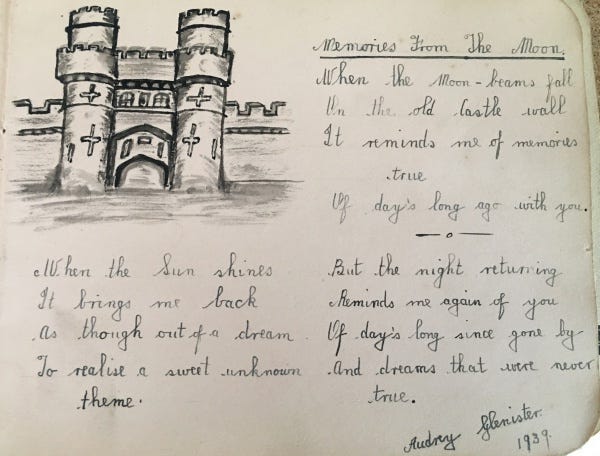 Memories From The Moon.
When the Moon-beams fall
On the old Castle wall
It reminds me of memories
true
Of day's long ago with you.
When the Sun shines
It brings me back
As though out of a dream
To realise a sweet unknown
theme.
But the night returning
Reminds me again of you
Of day's long since gone by
And dreams that were never
true.
Audrey Glenister.
1939.